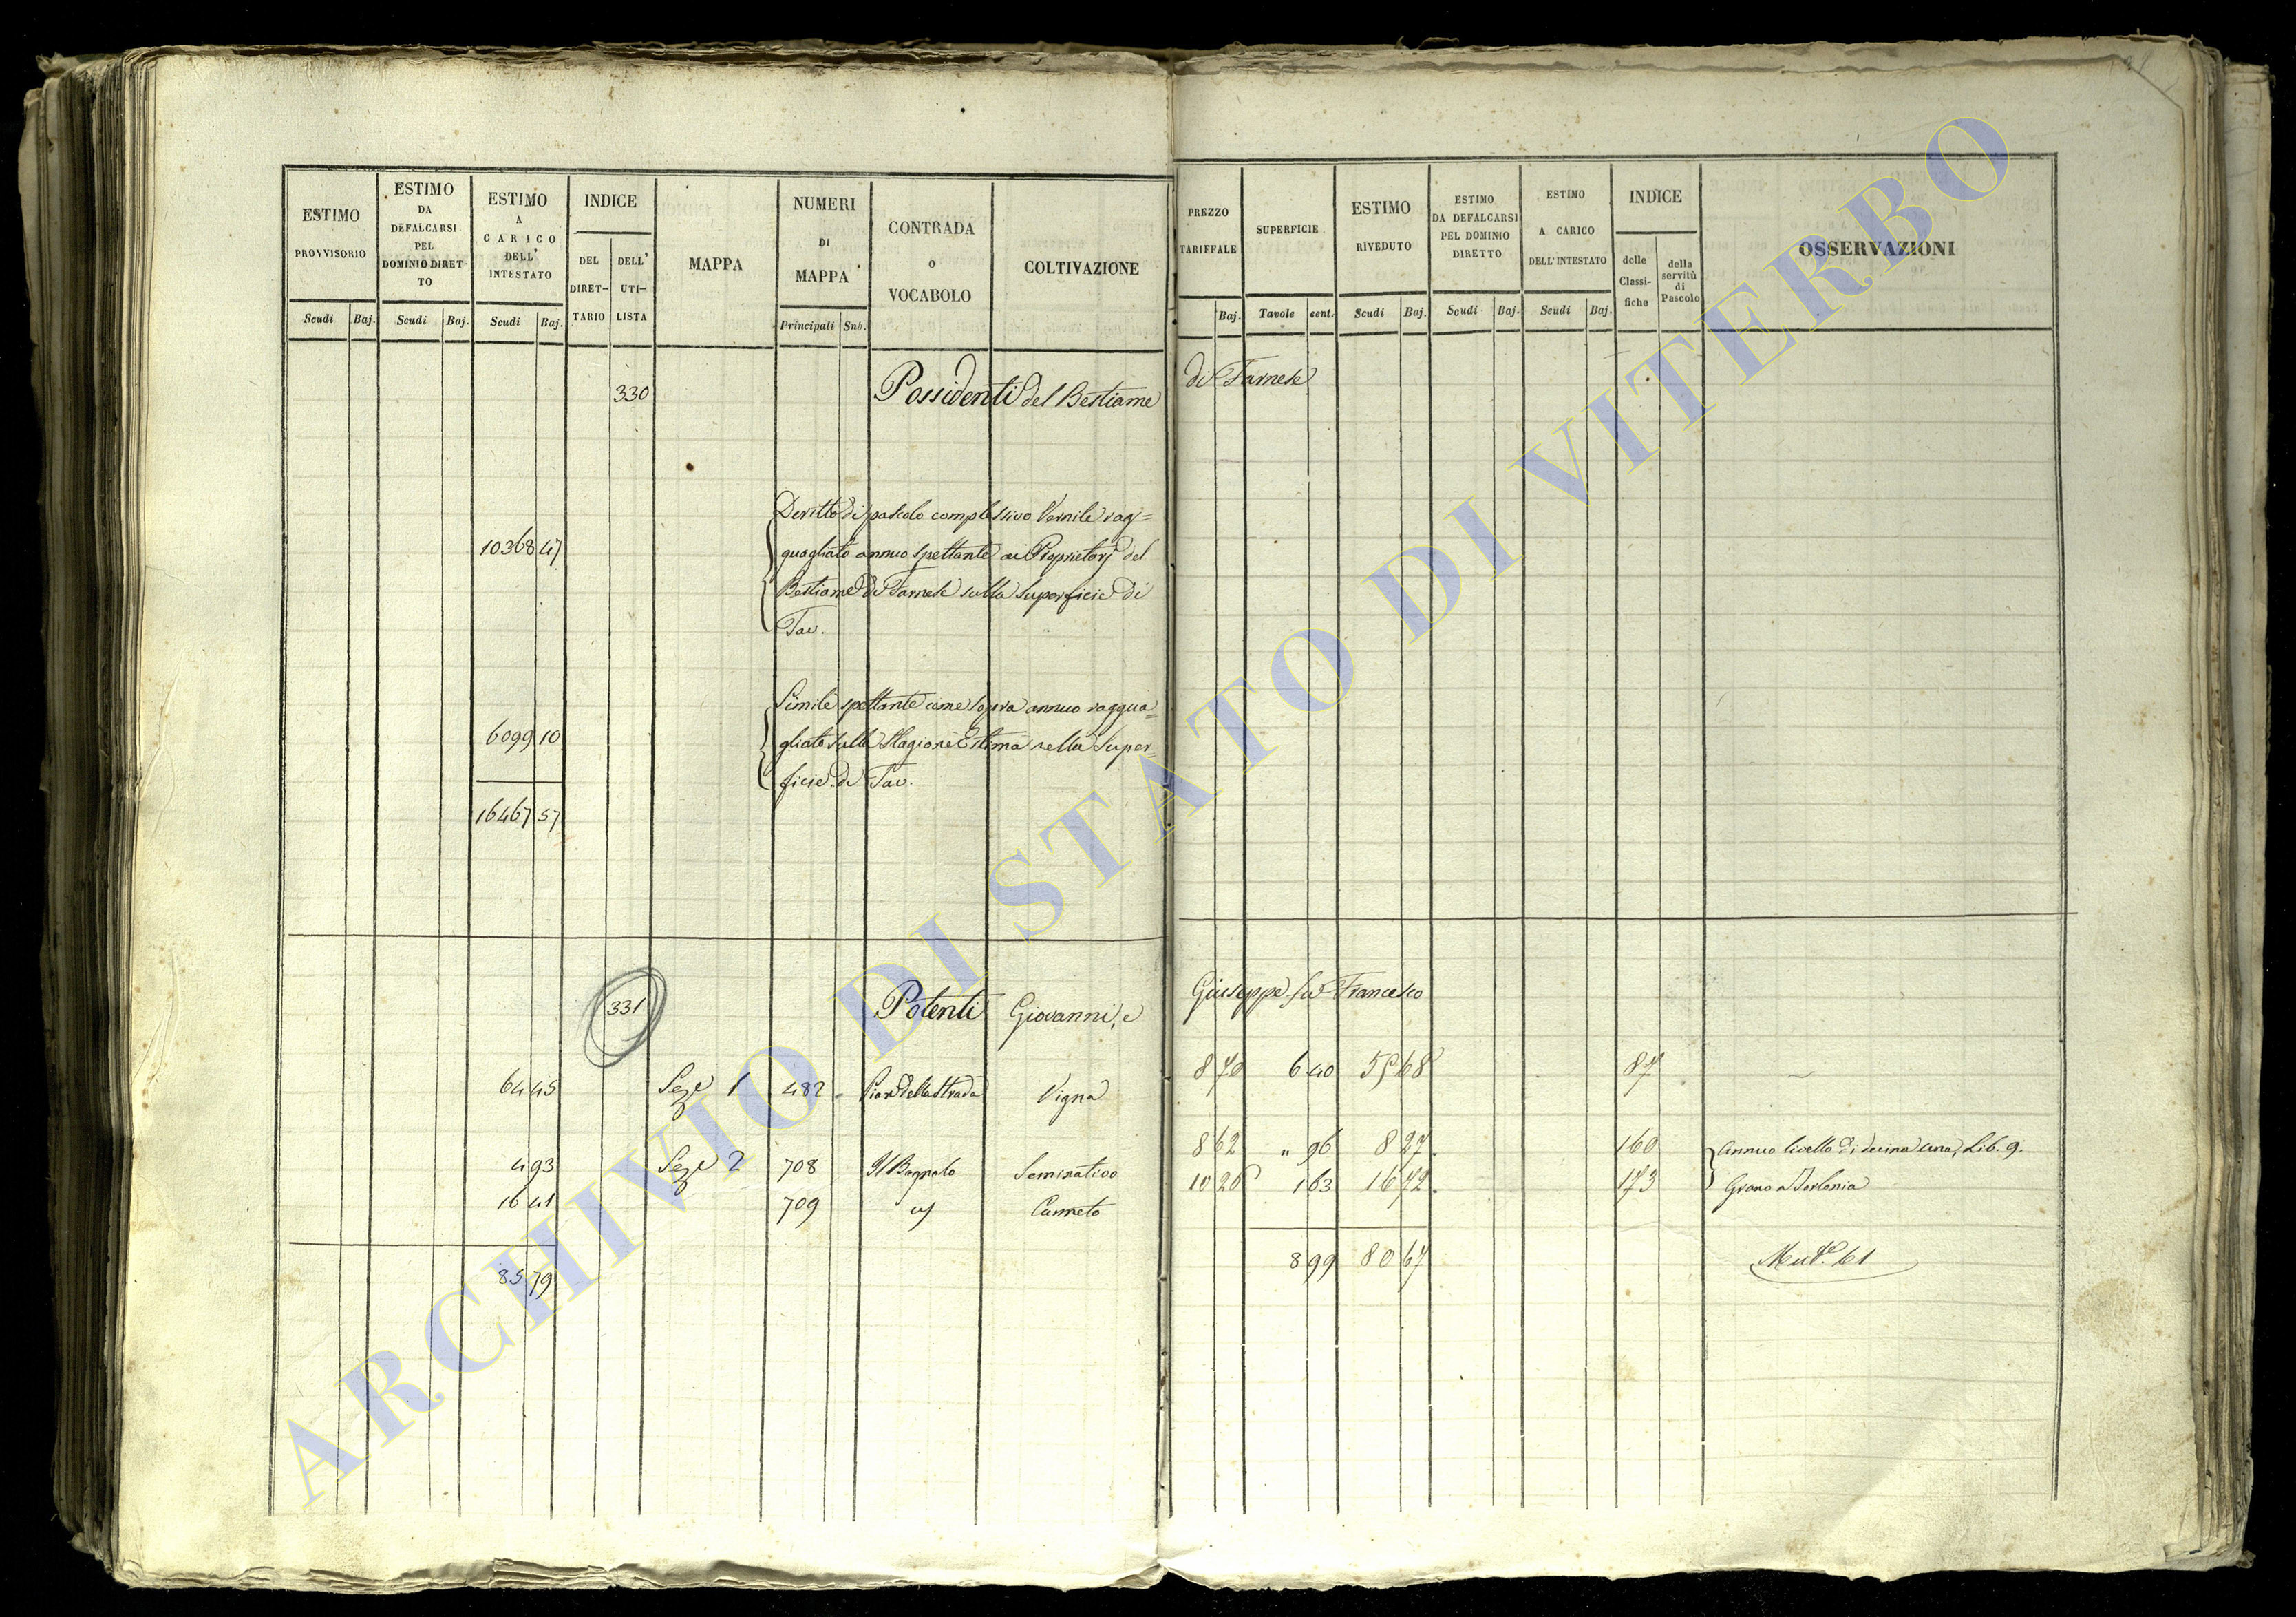 ESTIMO PROVVISORIO
Scudi Baj.
ESTIMO DA DEFALCARSI PEL DOMINIO DIRETTO
Scudi Baj.
ESTIMO A CARICO DELL' INTESTATO
Scudi Baj.
INDICE
DEL DIRET-TARIO
DELL' UTI-LISTA
MAPPA
NUMERI DI MAPPA
Principali Sub.
CONTRADA O VOCABOLO
COLTIVAZIONE
PREZZO TARIFFALE
Baj.
SUPERFICIE
Tavole cent.
ESTIMO RIVEDUTO
Scudi Baj.
ESTIMO DA DEFALCARSI PEL DOMINIO DIRETTO
Scudi Baj.
ESTIMO A CARICO DELL'INTESTATO
Scudi Baj.
INDICE
delle Classi-fiche
della servitù di Pascolo
OSSERVAZIONI
330 Possidenti del Bestiame di Farnese
Deritto di pascolo complessivo Vernile rag=
10368 47 guagliato annuo spettante ai Proprietarj del
Bestiame di Farnese sulla Superficie di
Tav.
Simile spettante come sopra annuo raggua=
6099 10 gliato sulla Stagione Estiva nella Super=
ficie di Tav.
16467 57
331 Potenti Giovanni, e Giuseppe fu Francesco
64 45 Sez.e 1 482 - Pian della Strada Vigna 8 70 6 40 55 68 87
4 93 Sez.e 2 708 Il Bagnolo Seminativo 8 62 " 96 8 27 160 Annuo livello di decina una, Lib. 9.
16 41 709 Canneto 10 26 1 63 16 72 173 Grano a Torlonia
85 79 8 99 80 67 Mut.e 61
ARCHIVIO DI STATO DI VITERBO